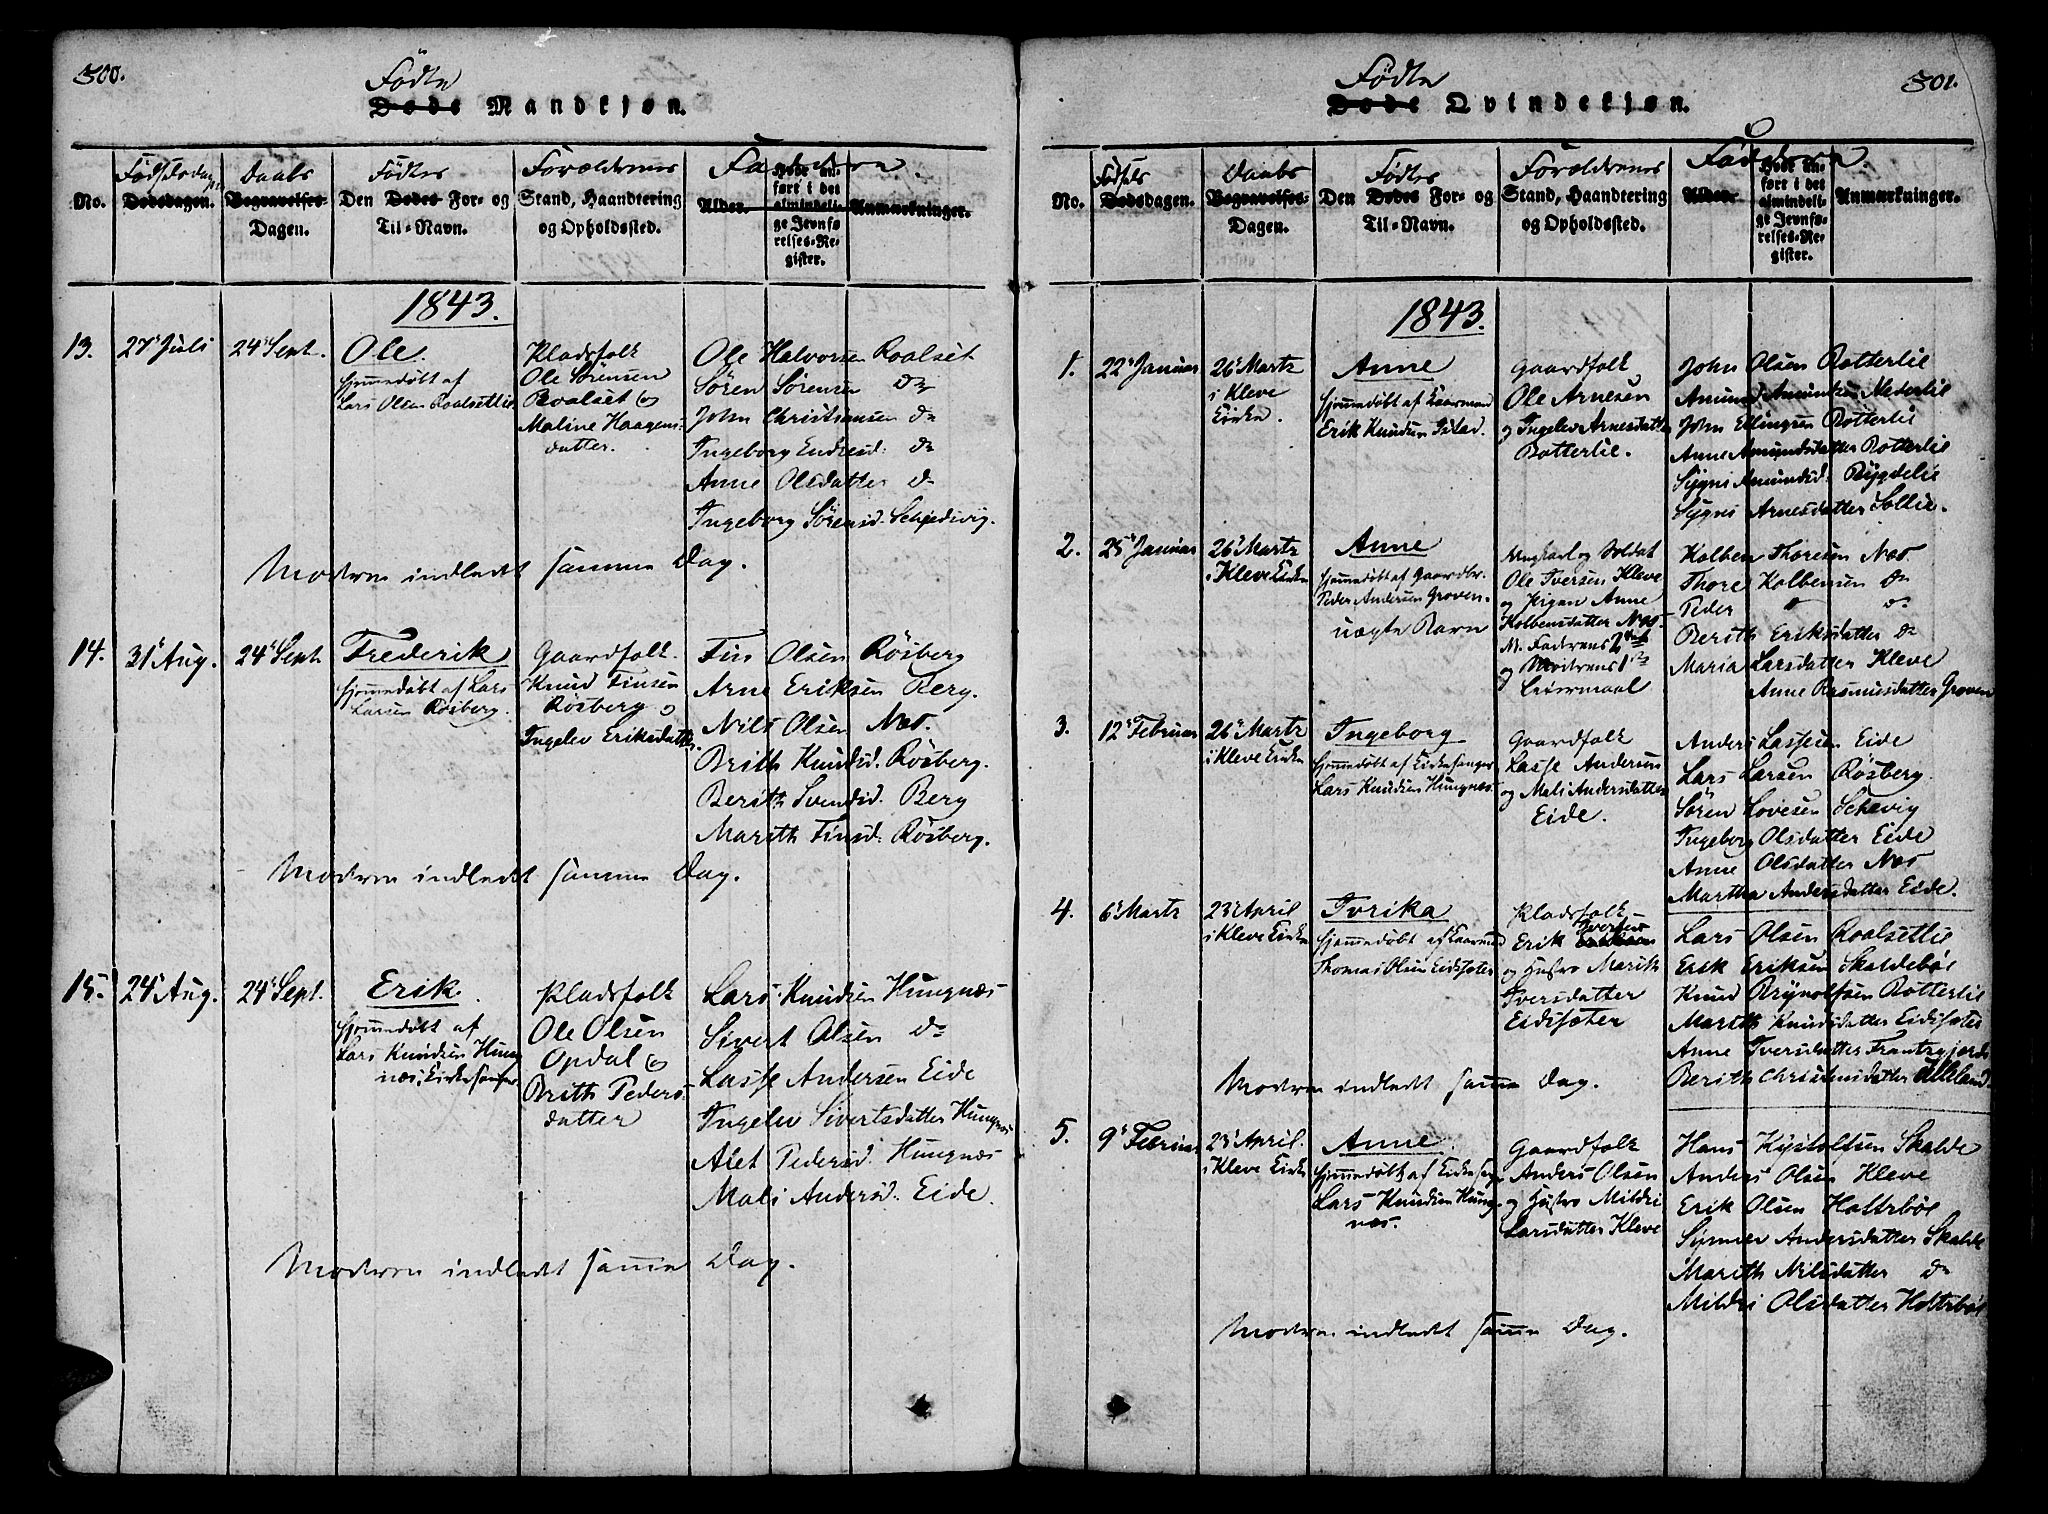 300.
Fødte
Døde Mandkjøn.
No.
Fødselsdagen
Dødsdagen.
Daabs
Begravelses-
Dagen.
Fødtes
Den Dødes For- og
Til-Navn.
Forældrenes
Stand, Haandtering
og Opholdssted.
Faddere
Alder.
Hvor an-
ført i det
almindeli-
ge Jevnfø-
relses-Re-
gister.
Anmærkninger.
1843.
13. 27de Juli 24de Sept. Ole.
hjemmedøbt af
Lars Olsen Roalsetlie
Pladsfolk
Ole Sørensen
Roalset og
Maline Haagens-
datter.
Ole Halvorsen Roalset
Søren Sørensen do
John Christiansen do
Ingeborg Endresd: do
Anne Olsdatter do
Ingeborg Sørensd. Schjedsvig.
Moderen indledt samme Dag.
14. 31te Aug. 24de Sept. Frederik
hjemmedøbt af Lars
Larsen Røsberg.
Gaardfolk
Knud Finsen
Røsberg og
Ingelev Eriksdatter
Fin Olsen Røsberg
Arne Eriksen Berg.
Nils Olsen Næs.
Brith Knudsd. Røsberg.
Berith Svendsd. Berg
Marith Finsd: Røsberg.
Moderen indledt samme Dag.
15. 24de Aug. 24de Sept. Erik.
hjemmedøbt af
Lars Knudsen Hung-
næs, Kirkesanger
Pladsfolk
Ole Olsen
Opdal og
Brith Peders-
datter
Lars Knudsen Hungnæs
Sivert Olsen do
Lasse Andersen Eide
Ingelev Sivertsdatter Hungnæs
Alet Pedersd. Hungnæs
Mali Andersd. Eide.
Moderen indledt samme Dag.
301.
Fødte
Døde Qvindekjøn.
No.
Fødsels
Dødsdagen.
Daabs
Begravelses-
Dagen.
Fødtes
Den Dødes For- og
Til-Navn.
Forældrenes
Stand, Haandtering
og Opholdssted.
Faddere.
Alder.
Hvor an-
ført i det
almindeli-
ge Jevnfø-
relses-Re-
gister.
Anmærkninger.
1843.
1. 22de Januar 26de Martz
i Kleve
Kirke.
Anne
hjemmedøbt af Enkemand
Erik Knudsen
Gaardfolk
Ole Arnesen
og Ingelev Arnesdatter
Rotterlie.
John Olsen Rotterlie
Amund Amundsen Nederlie
John Ellingsen Rotterlie
Anne Amundsdatter Rotterlie
Sygni Amundsd. Rygdelie
Sygni Arnesdatter Sollie.
2. 25de Januar 26de Martz
i Kleve Kirke
Anne
hjemmedøbt af Gaardbr.
Peder Andersen Groven.
uægte Barn
Ungkarl og Soldat
Ole Iversen Kleve
og Pigen Anne
Kolbensdatter Næs.
N. Faderens 2det
og Moderens 1ste
Leiermaal
Kolben Thoresen Næs
Thore Kolbensen do
Peder " do
Berith Eriksdatter do
Maria Larsdatter Kleve
Anne Rasmusdatter Groven
3. 12te Februar 26de Martz
i Kleve Kirke
Ingeborg
hjemmedøbt af Kirkesanger
Lars Knudsen Hungnæs.
Gaardfolk
Lasse Andersen
og Mali Andersdatter
Eide.
Anders Lassesen Eide
Lars Larsen Røsberg
Søren Lovesen Schevig
Ingeborg Olsdatter Eide
Anne Olsdatter Næs
Martha Andersdatter Eide.
4. 6te Martz 23de April
i Kleve Kirke
Iverika
hjemmedøbt af
Thomas Olsen Eidsæter
Pladsfolk
Iversen
Erik Eriksen
og Hustro Marith
Iversdatter
Eidsæter
Lars Olsen Roalsetlie
Erik Eriksen Skaldebøe
Knud Brynolfsen Rotterlie
Marith Knudsdatter Eidsæter
Anne Iversdatter
Berith Christensdatter
Moderen indledt samme Dag.
5. 9de Februar 23de April.
i Kleve Kirke
Anne
hjemmedøbt af Kirkesanger
Lars Knudsen Hung-
næs.
Gaardfolk
Anders Olsen
og Hustro Mildri
Larsdatter Kleve
Hans Kystolfsen Skalde
Anders Olsen Kleve
Erik Olsen Holtebøe
Synnev Andersdatter Skalde
Marith Nilsdatter do
Mildri Olsdatter Holtebøe
Moderen indledt samme Dag.